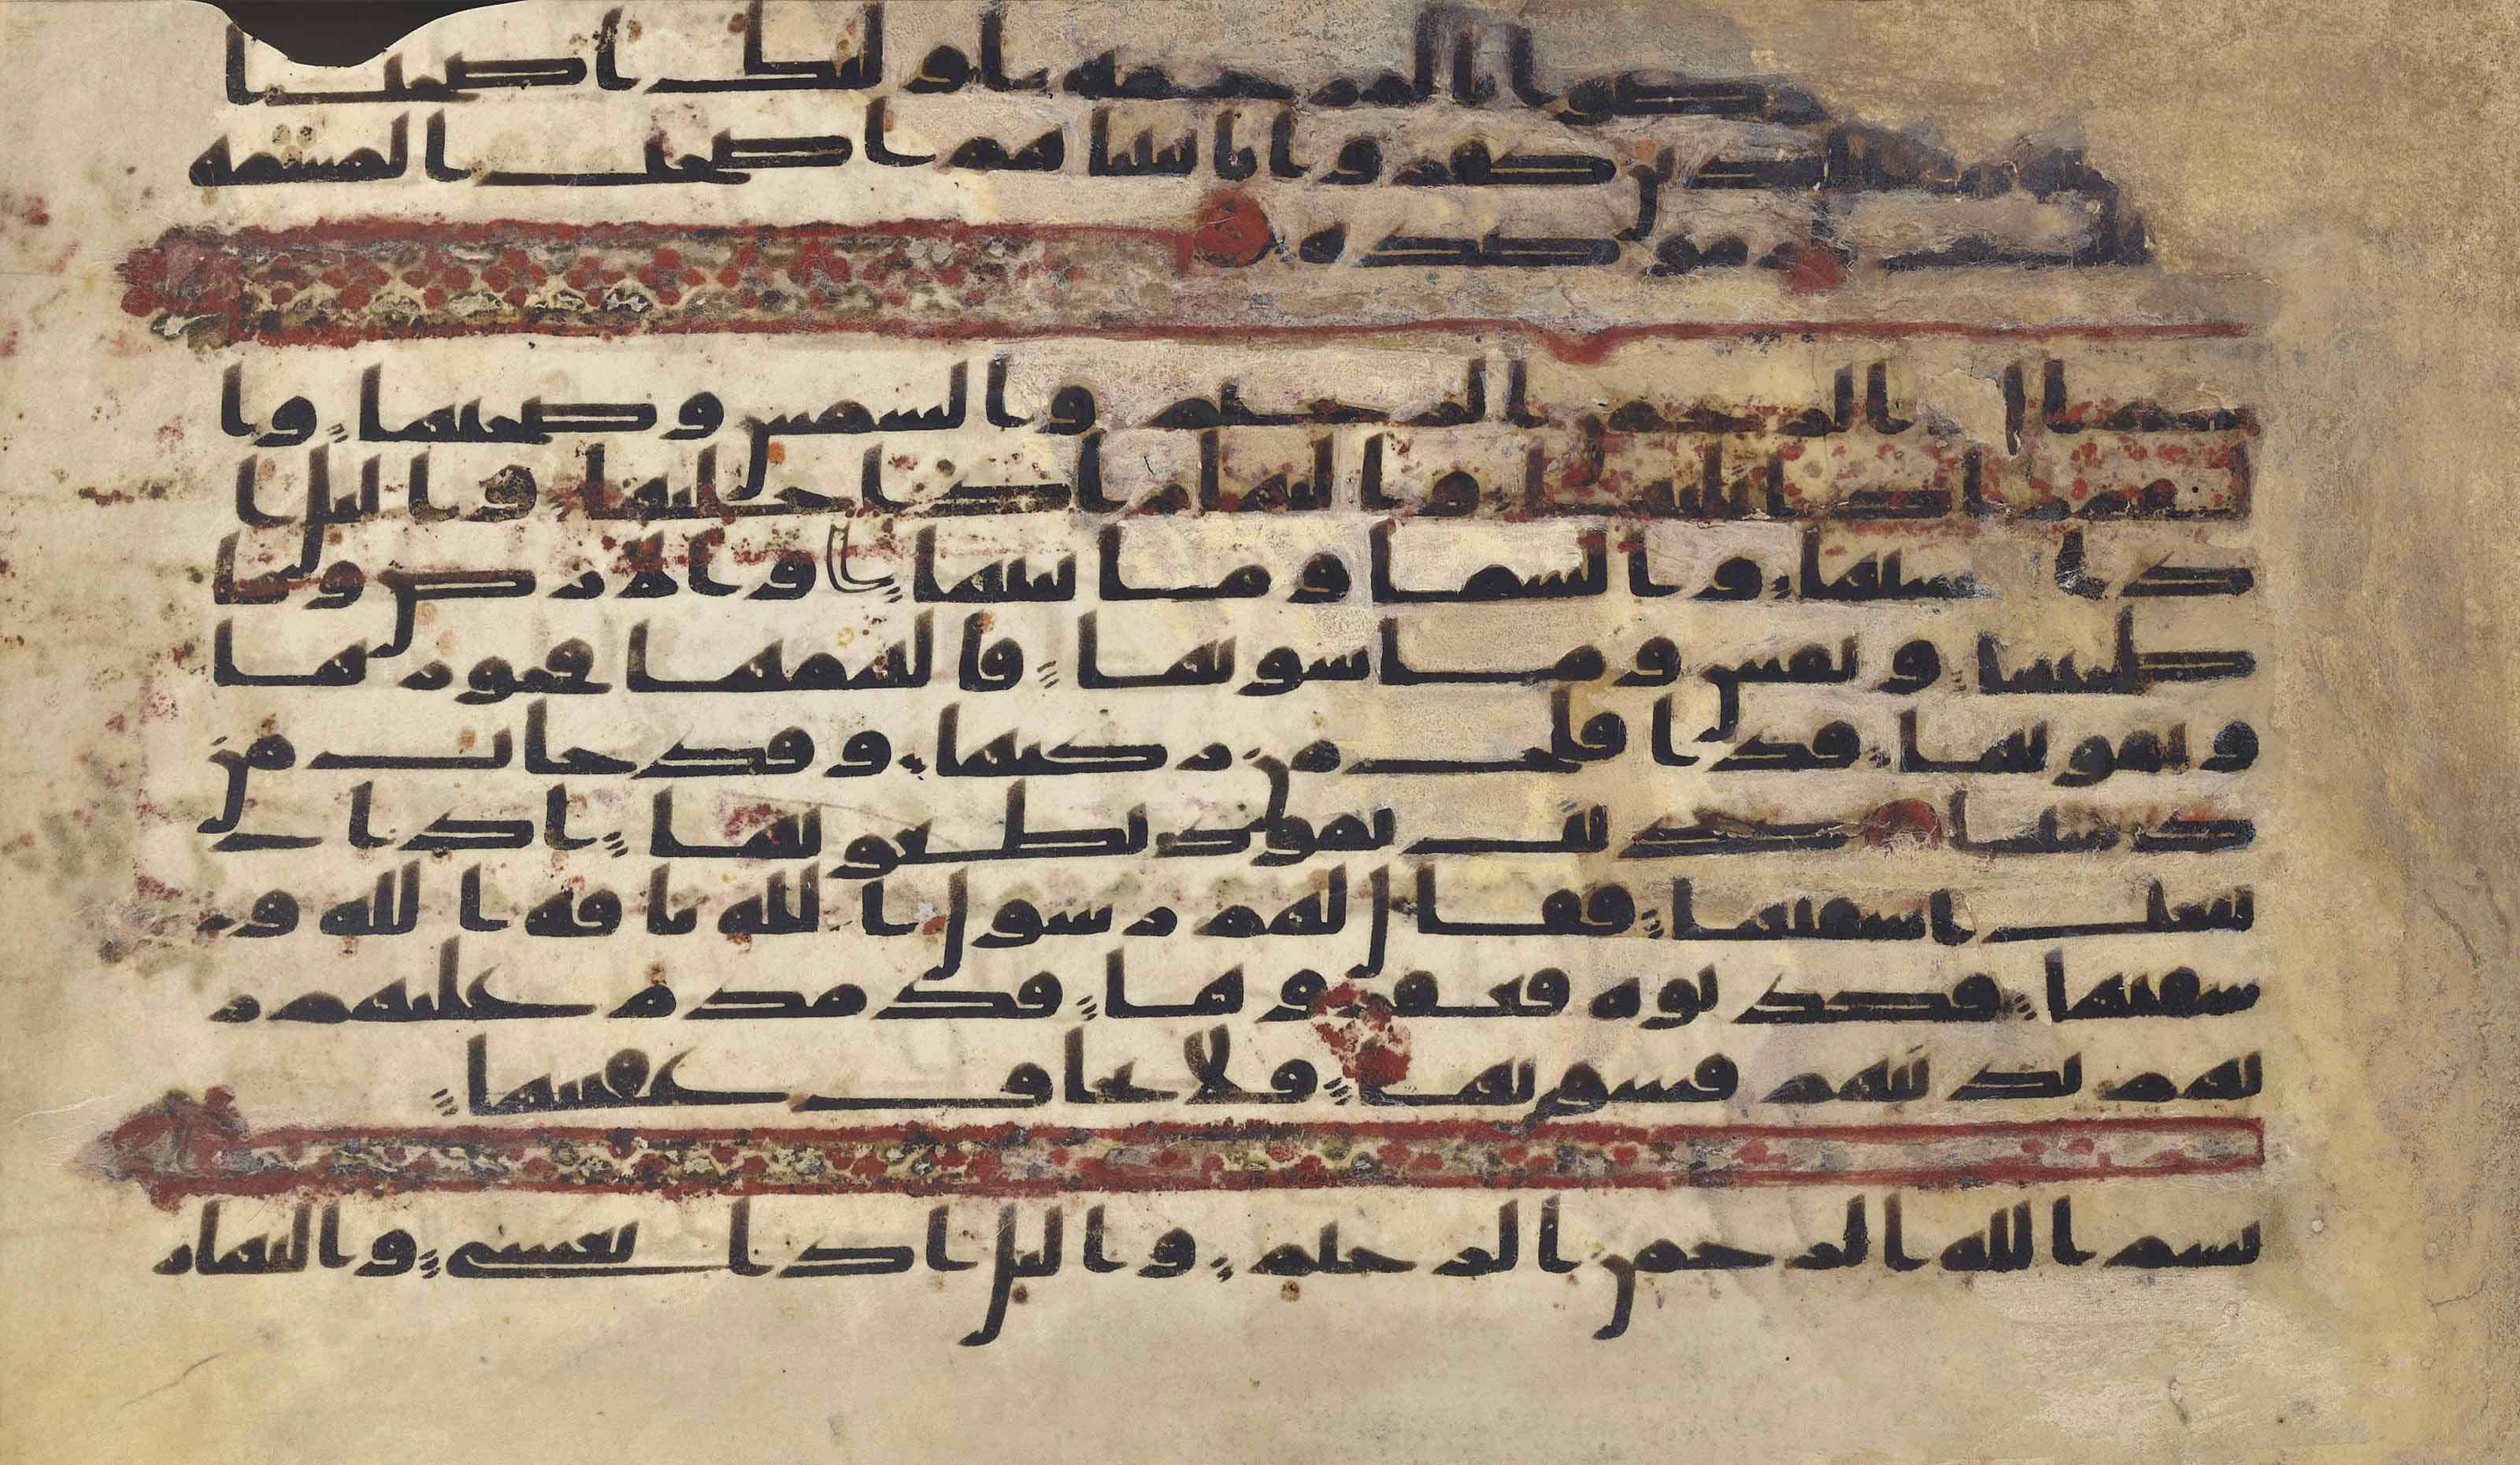 وصوا بالمرحمة اولئك اصحب ا
لميمنة والذين كفروا بايتنا هم اصحب المشئمة
عليهم نار موصدة
بسم الله الرحمن الرحيم والشمس وضحيها وا
لقمر اذا تليها والنهار اذا جليها واليل ا
ذا يغشيها والسما وما بنيها والارض وما
طحيها ونفس وما سويها فالهمها فجورها
وتقويها قد افلح من زكيها وقد خاب من
دسيها كذبت ثمود بطغويها اذ ا
نبعث اشقيها فقال لهم رسول الله ناقة الله و
سقيها فكذبوه فعقروها فدمدم عليهم ر
بهم بذنبهم فسويها ولا يخاف عقبيها
بسم الله الرحمن الرحيم واليل اذا يغشى والنهار